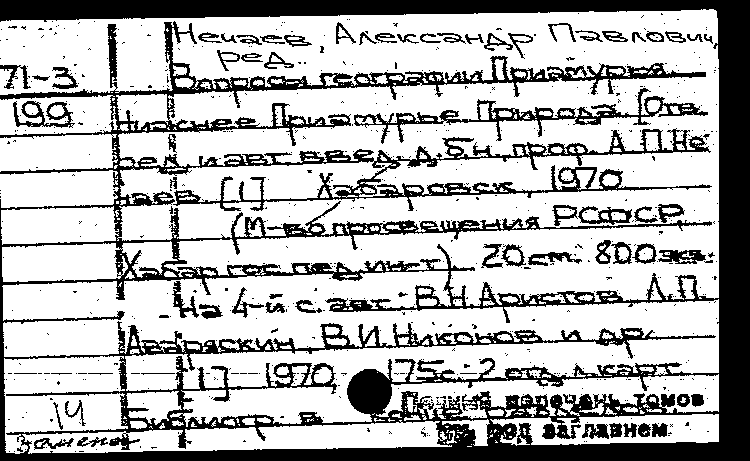 Нечаев, Александр Павлович,
ред.
71-3 Вопросы географии Приамурья.
199 Нижнее Приамурье. Природа. [Отв.
ред. и авт. введ. д.б.н., проф. А. П. Не-
чаев. [1] Хабаровск, 1970
(М-во просвещения РСФСР.
Хабар. гос. пед. ин-т). 20 см. 800 экз.
На 4-й с. авт.: В.Н. Аристов, Л.П.
В.И. Никонов и др.
[1] 1970, 175 с.; 2 отд. л. карт.
14 Библиогр. в конце разделов.
Полный перечень томов
замена под заглавием